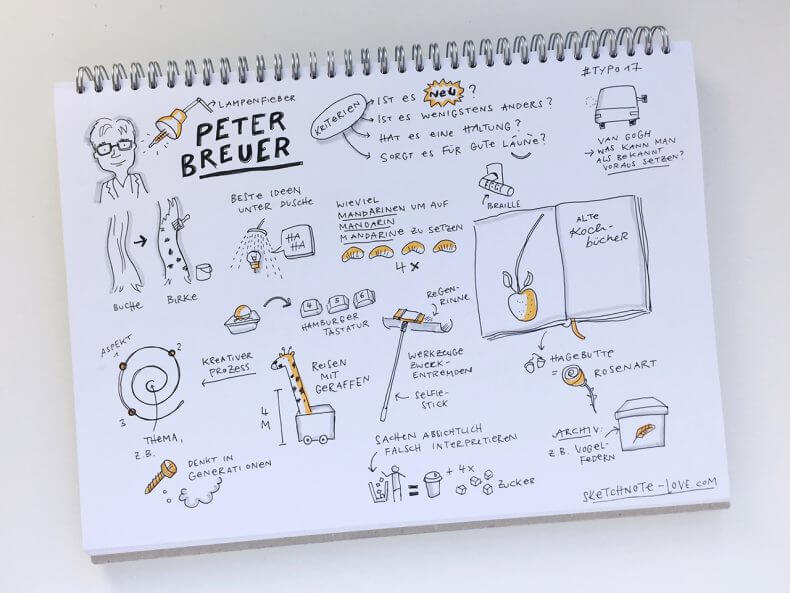 #TYPO17
LAMPENFIEBER
PETER
BREUER
KRITERIEN
IST ES NEU ?
IST ES WENIGSTENS ANDERS?
HAT ES EINE HALTUNG?
SORGT ES FÜR GUTE LAUNE?
VAN GOGH
WAS KANN MAN
ALS BEKANNT
VORAUS SETZEN?
BUCHE
BIRKE
BESTE IDEEN
UNTER DUSCHE
HA
HA
WIEVIEL
MANDARINEN UM AUF
MANDARIN
MANDARINE ZU SETZEN
4 x
BRAILLE
ALTE
KOCH-
BÜCHER
4 5 6
HAMBURGER
TASTATUR
REGEN-
RINNE
WERKZEUGE
ZWECK-
ENTREMDEN
SELFIE-
STICK
HAGEBUTTE
= ROSENART
ASPEKT
1
2
3
KREATIVER
PROZESS
THEMA,
Z.B.
REISEN
MIT
GERAFFEN
4
M
DENKT IN
GENERATIONEN
SACHEN ABSICHTLICH
FALSCH INTERPRETIEREN
= + 4x ZUCKER
ARCHIV:
Z.B. VOGEL-
FEDERN
SKETCHNOTE-LOVE.COM